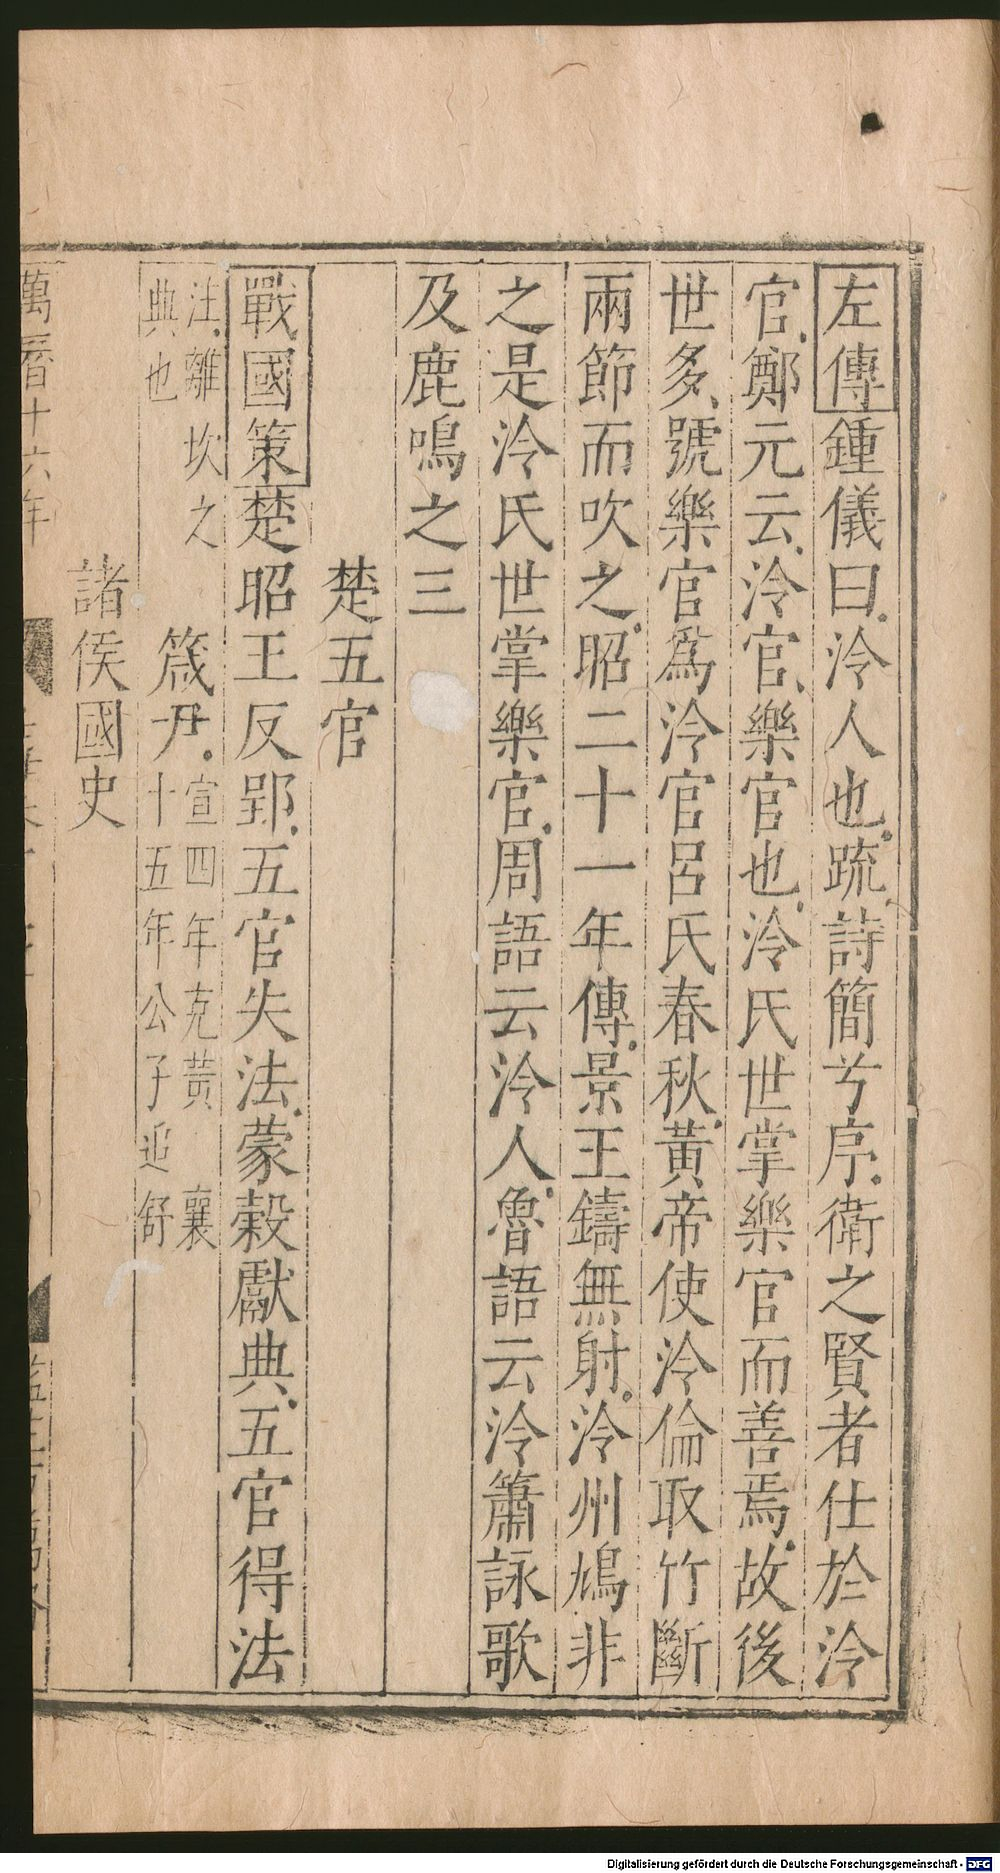 左傳鍾儀曰泠人也疏詩簡兮序衛之賢者仕於泠
官鄭元云泠官樂官也泠氏世掌樂官而善焉故後
世多號樂官爲泠官呂氏春秋黃帝使泠倫取竹斷
兩節而吹之昭二十一年傳景王鑄無射泠州鳩非
之是泠氏世掌樂官周語云泠人魯語云泠簫詠歌
及鹿鳴之三
楚五官
戰國策楚昭王反郢五官失法蒙穀獻典五官得法
注離坎之
典也
箴尹宣四年克黃 襄
十五年公子追舒
諸侯國史
萬曆十六年
Digitalisierung gefördert durch die Deutsche Forschungsgemeinschaft - DFG